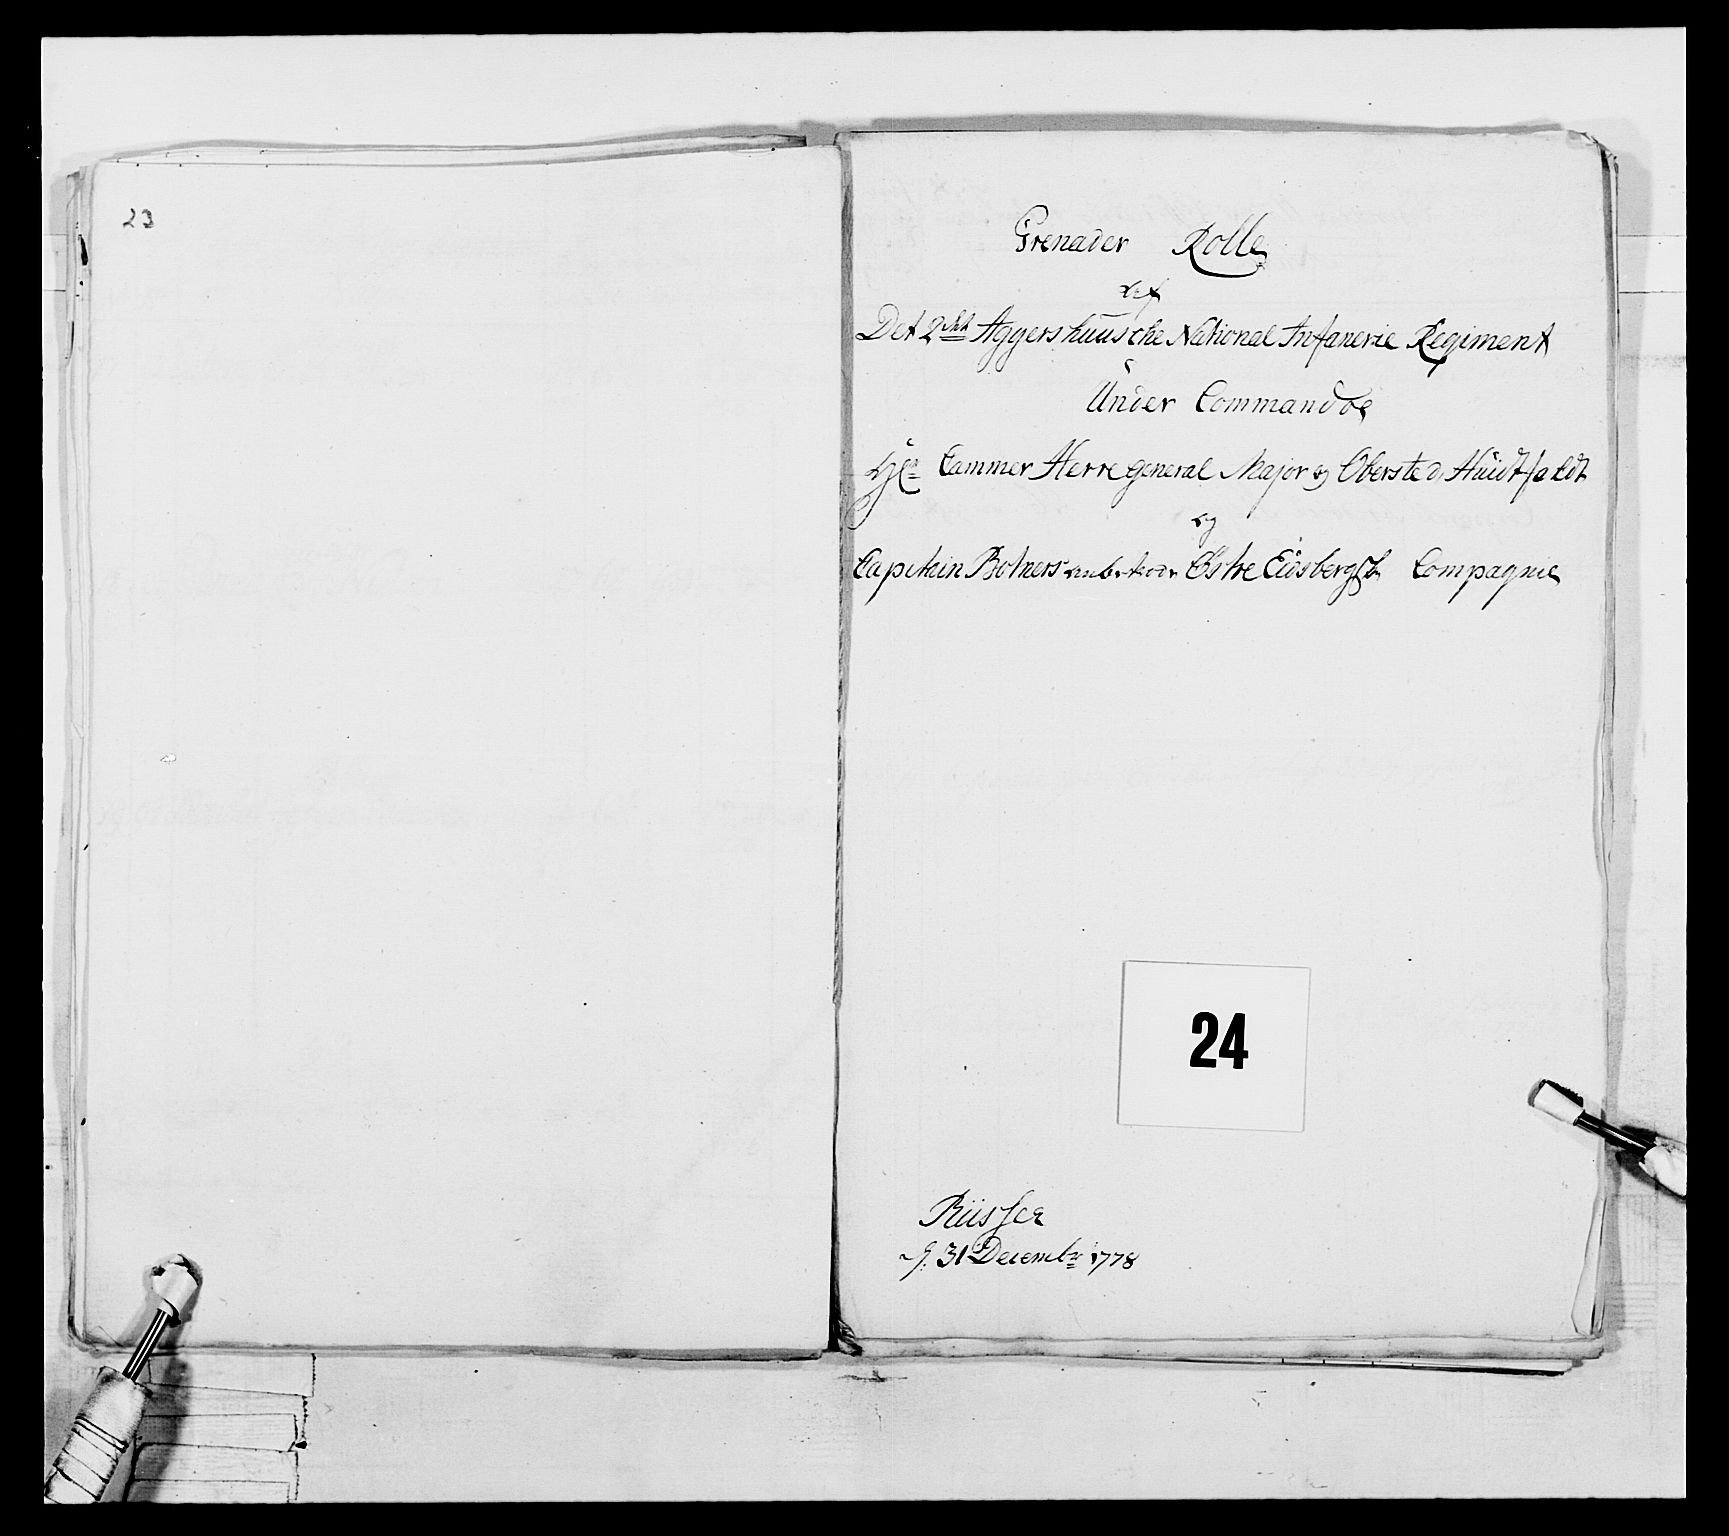 23
Grenader Rolle
af
Det 2det Aggershuusche National Infanerie Regiment
Under Commandoe
Hr Cammer Herre general Major og Oberste d. Huidtfeldt
og
Capitain Botners anbetroede Østre Eidsbergsk Compagnie
24
d. 31 Decembr 1778